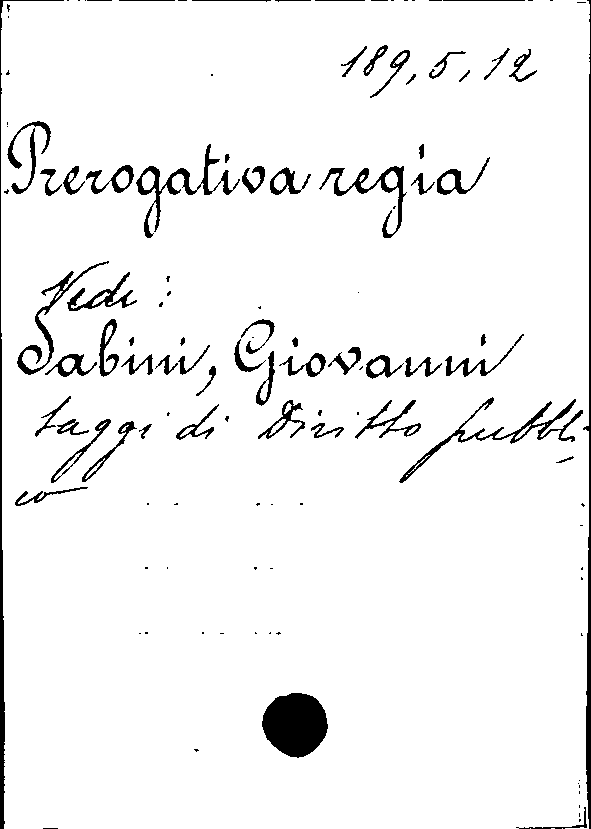 189, 5, 12
Prerogativa regia
Vedi:
Sabini, Giovanni
Saggi di Diritto pubbli-
co